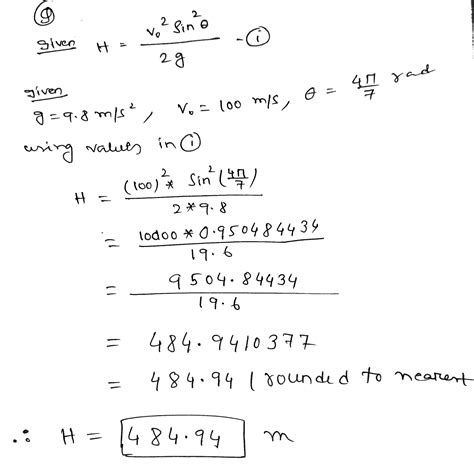 Q
given H = v₀² sin²θ / 2g - (i)
given
g = 9.8 m/s², v₀ = 100 m/s, θ = 4π/7 rad
using values in (i)
H = (100)² * sin²(4π/7) / 2 * 9.8
= 10000 * 0.950484434 / 19.6
= 9504.84434 / 19.6
= 484.9410377
= 484.94 ( rounded to nearest
∴ H = 484.94 m